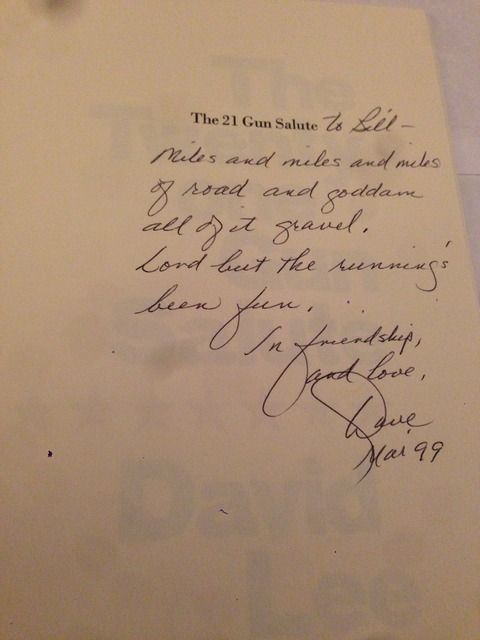 The 21 Gun Salute to Bill —
Miles and miles and miles
of road and goddam
all of it gravel.
Lord but the running's
been fun.
In friendship,
and love,
Dave
Mar 99
The
Gun
Salute
David
Lee